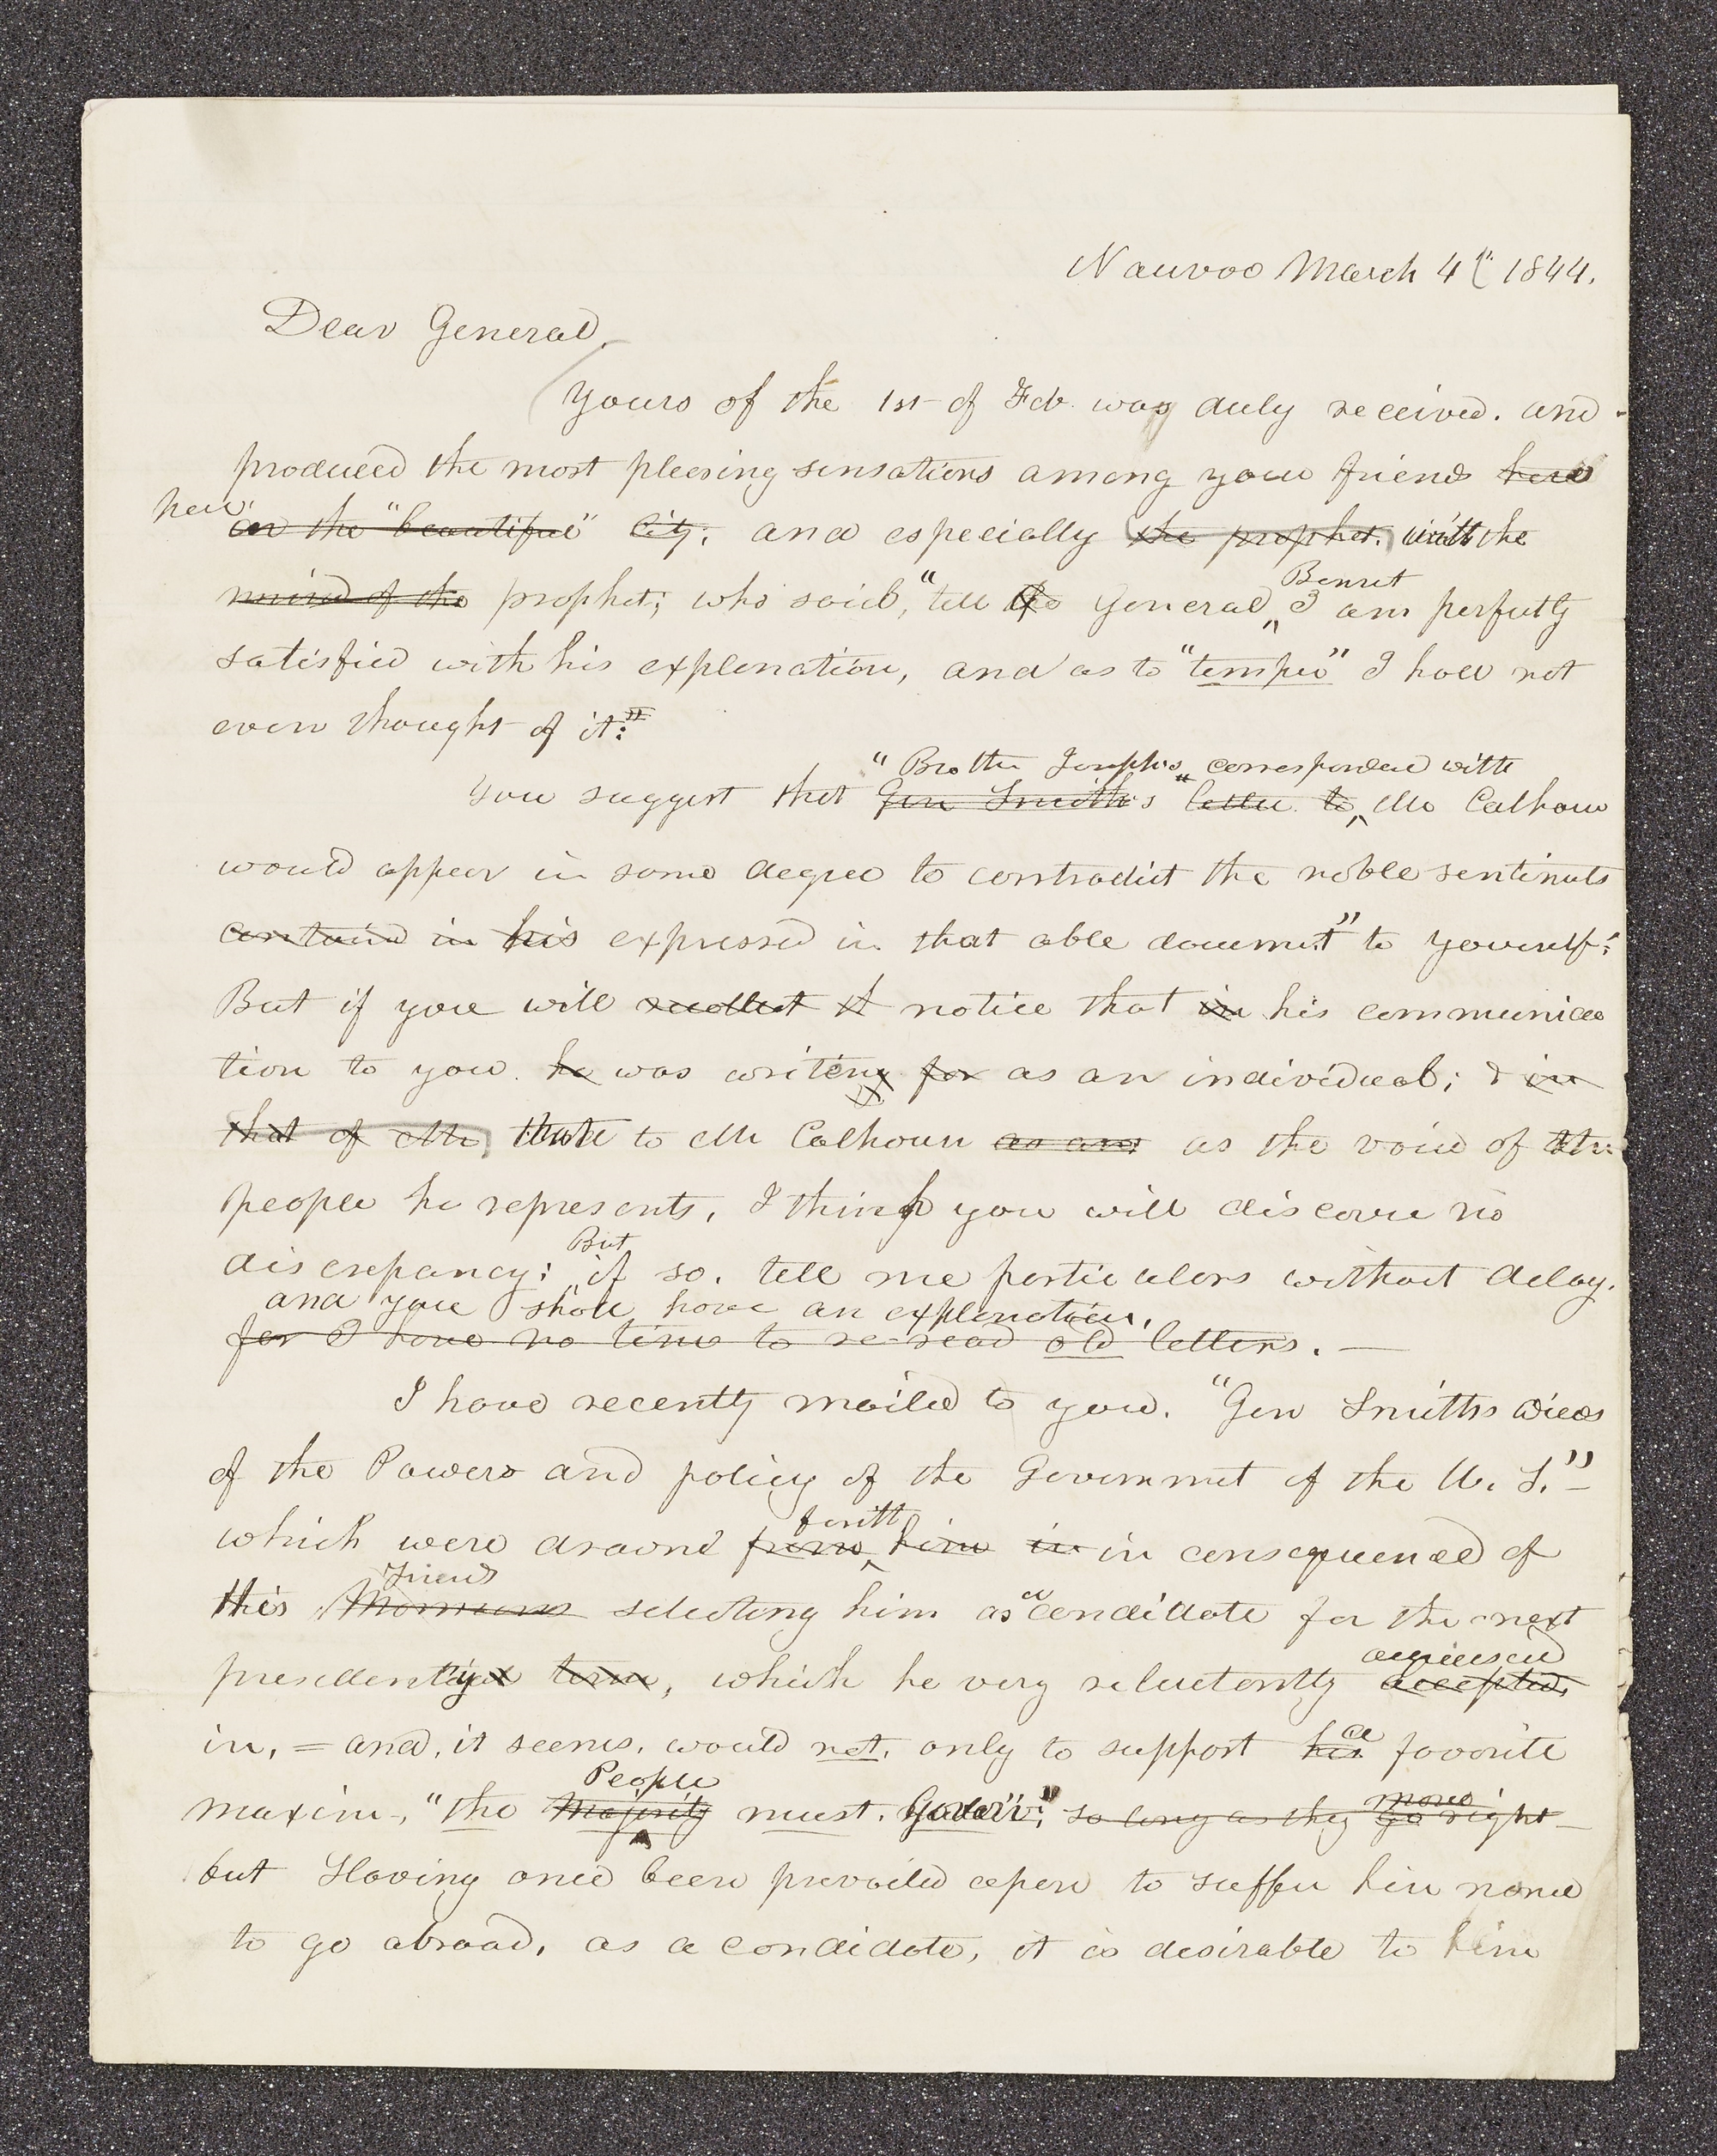 Nauvoo March 4th 1844.
Dear General,
Yours of the 1st of Feb. was duly received. and
produced the most pleasing sensations among your friends here
here
in the "beautiful" City; and especially the prophet. with the
mind of the prophet; who said, "tell Ge General Bennet I am perfectly
satisfied with his explanation, and as to "temper" I have not
even thought of it:"
"Brother Joseph's correspondence with
You suggest that Gen Smith's letter to Mr Calhoun
would appear in some degree to contradict the noble sentiments
contained in his expressed in that able document" to yourself:
But if you will recollect it notice that in his communica
tion to you he was writing for as an individual; & in
that of Mr, that to Mr Calhoun as an as the voice of the
people he represents, I think you will discover no
discrepancy: But if so, tell me particulars without delay.
and you shall have an explanation,
for I have no time to re-read old letters. —
I have recently mailed to you. "Gen Smiths views
of the Powers and policy of the Government of the U. S." –
which were drawn from forth him in in consequence of
this Mormons Friends selecting him as a candidate for the next
presidentcy term, which he very reluctantly accepted, acquiesced
in, = and, it seems, would not, only to support his a favorite
maxim, "the Majority People must. Govern"; so long as they go move right –
but Having once been prevailed upon to suffer his name
to go abroad, as a candidate, it is desirable to him